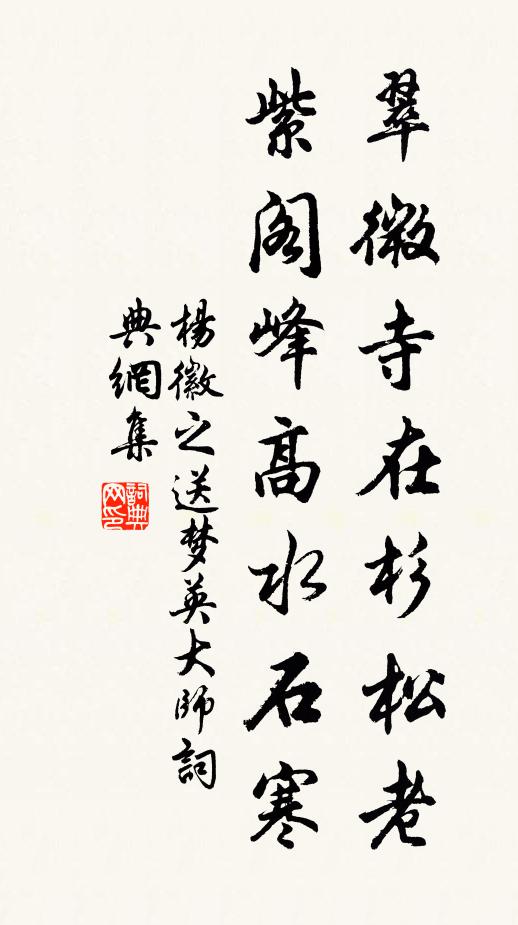 翠微寺在杉松老
紫阁峰高水石寒
楊徽之送梦英大師詞
典網集
詞典网印